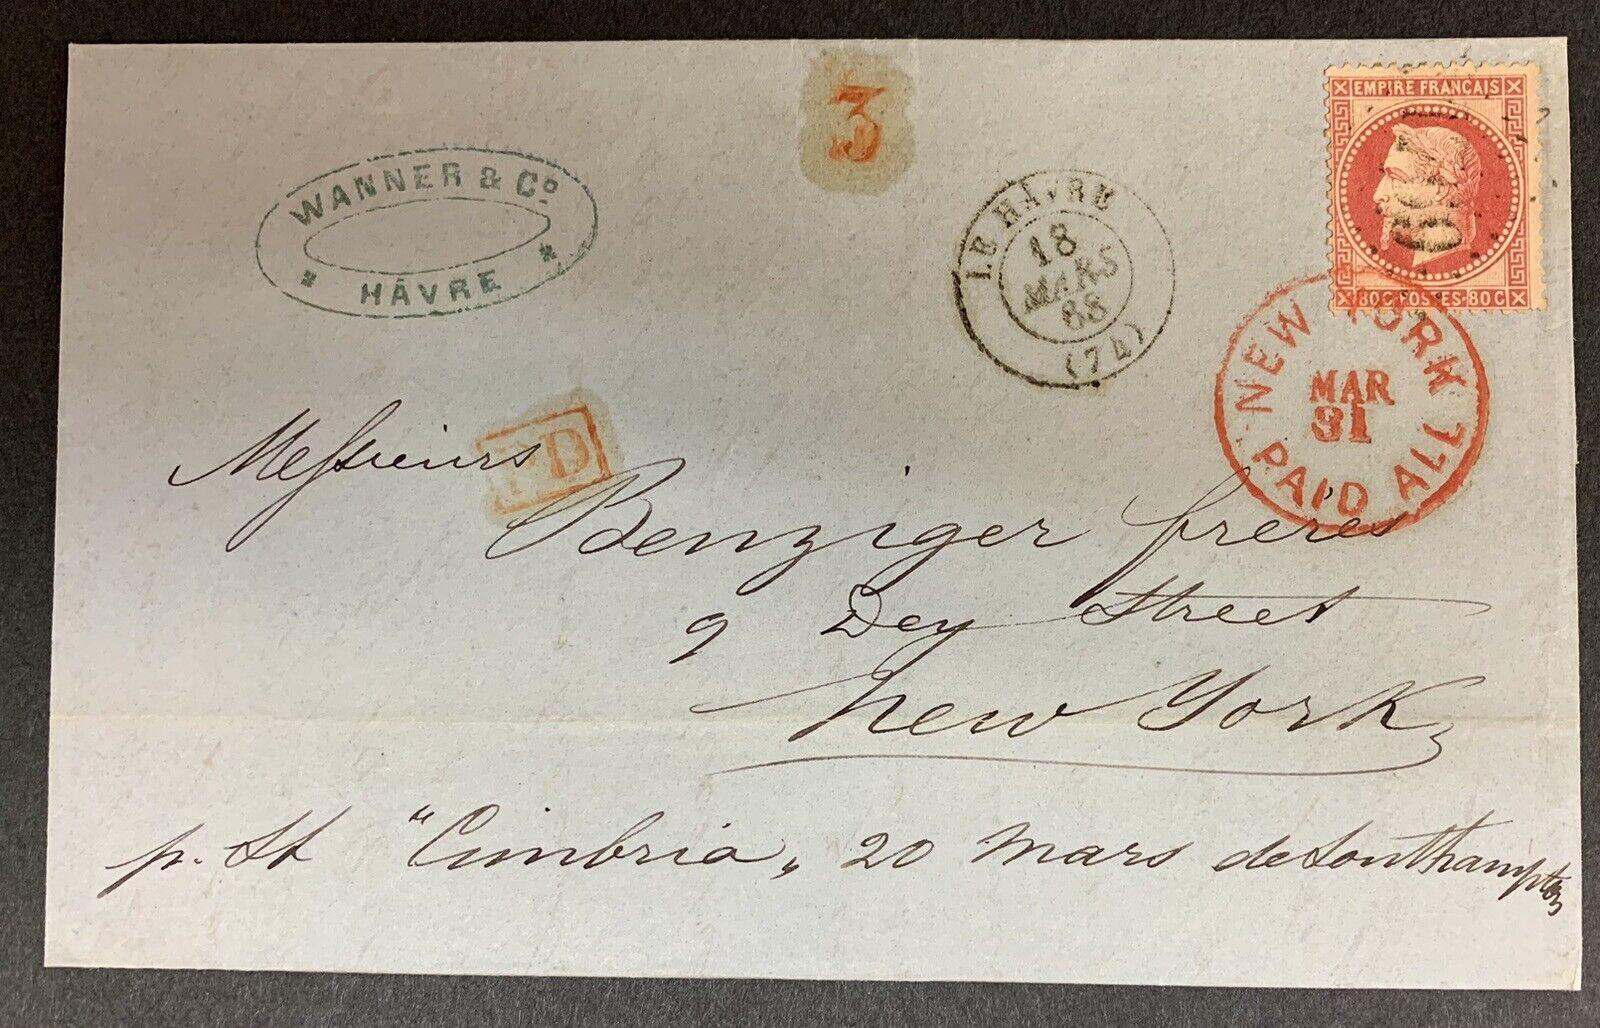 3
EMPIRE FRANÇAIS
80C POSTES 80C
WANNER & Co.
* HÂVRE *
LE HÂVRE
18
MARS
68
(74)
NEW YORK
MAR
31
PAID ALL
PD
Messieurs
Benziger frères
9 Dey Street
New York
p. St "Cimbria" 20 Mars de Southampton